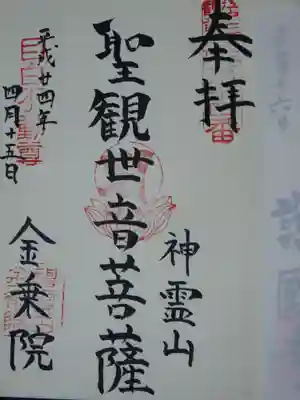 奉拝
聖観世音菩薩
神霊山
金乗院
平成廿四年
四月十五日